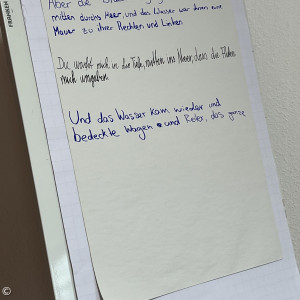 Aber die
mitten durchs Meer, und das Wasser war ihnen eine
Mauer zu ihrer Rechten und Linken
Du warfst mich in die Tiefe, mitten ins Meer, dass die Fluten
mich umgaben
Und das Wasser kam wieder und
bedeckte Wagen und Reiter, das ganze
FRANKEN
©